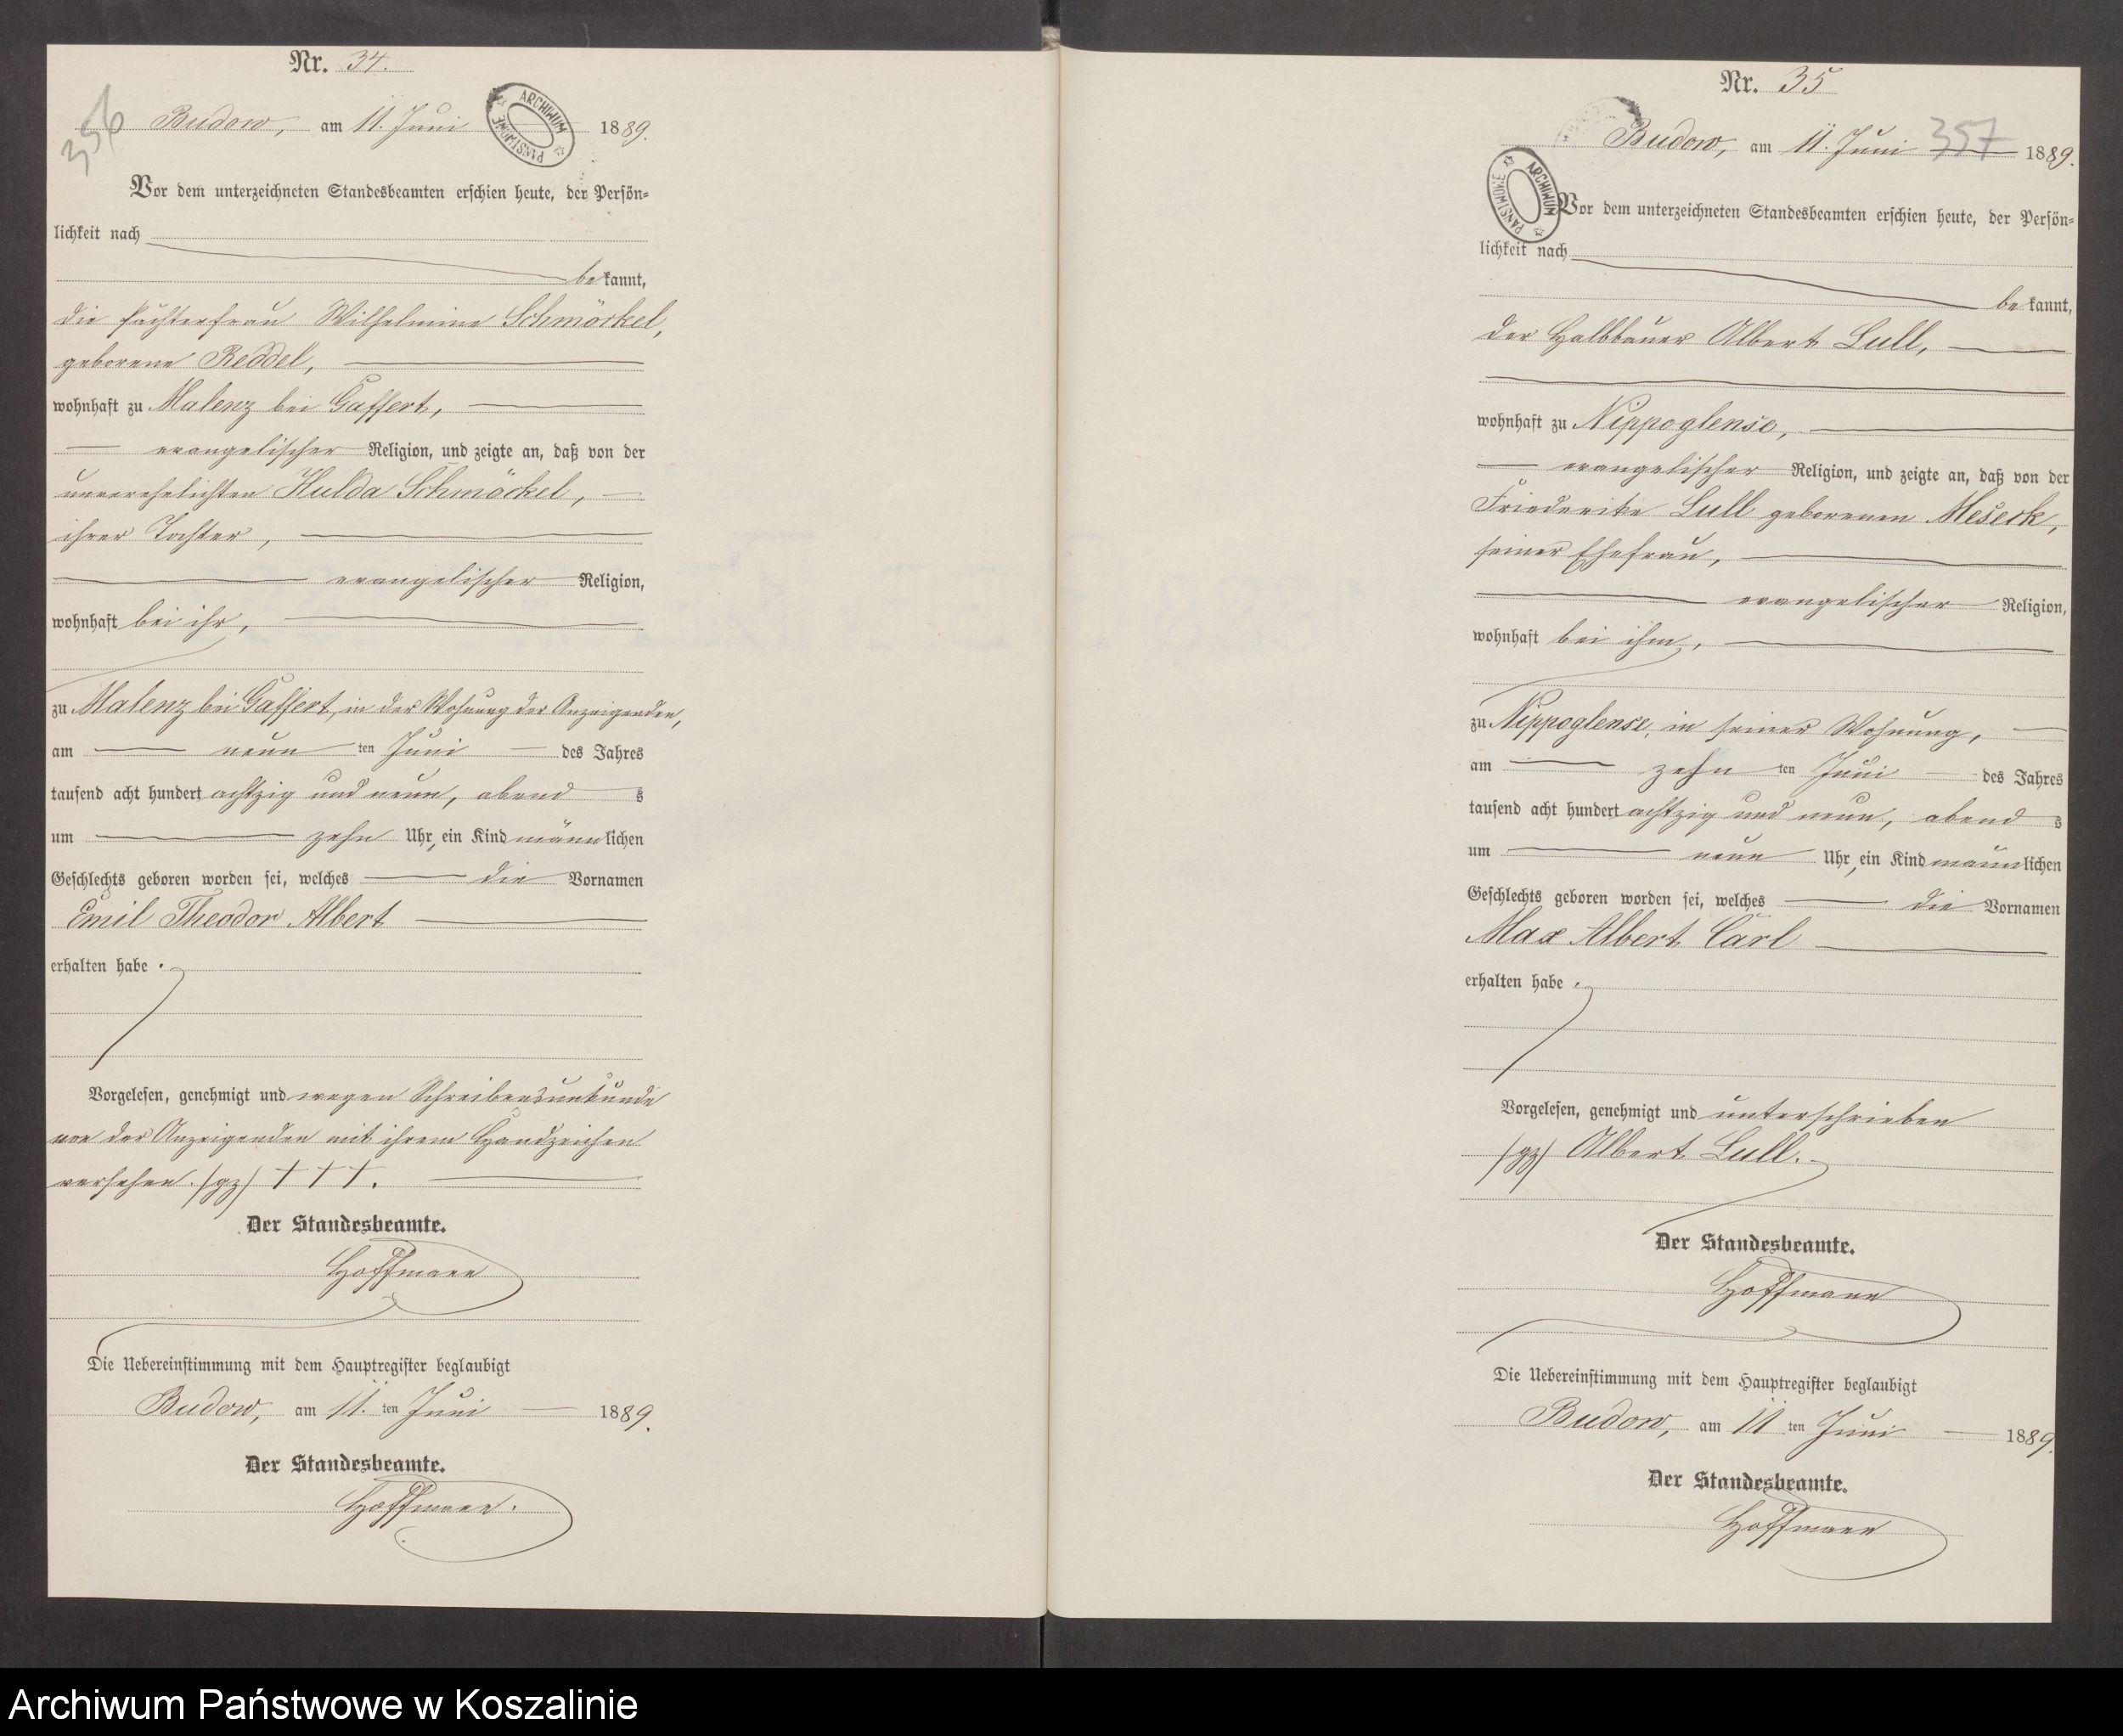 Nr. 34.
356
Budow, am 11. Juni 1889.
ARCHIWUM PAŃSTWOWE
Vor dem unterzeichneten Standesbeamten erschien heute, der Persön-
lichkeit nach
be kannt,
die Pächterfrau Wilhelmine Schmöckel,
geborene Reddel,
wohnhaft zu Malenz bei Gaffert,
evangelischer Religion, und zeigte an, daß von der
unverehelichten Hulda Schmöckel,
ihrer Tochter,
evangelischer Religion,
wohnhaft bei ihr,
zu Malenz bei Gaffert, in der Wohnung der Anzeigenden,
am neun ten Juni des Jahres
tausend acht hundert achtzig und neun, abend s
um zehn Uhr, ein Kind männ lichen
Geschlechts geboren worden sei, welches die Vornamen
Emil Theodor Albert
erhalten habe.
Vorgelesen, genehmigt und wegen Schreibensunkunde
von der Anzeigenden mit ihrem Handzeichen
versehen. (gz) † † †.
Der Standesbeamte.
Hoffmann
Die Uebereinstimmung mit dem Hauptregister beglaubigt
Budow, am 11. ten Juni 1889.
Der Standesbeamte.
Hoffmann.
Nr. 35
Budow, am 11. Juni 357 1889.
ARCHIWUM PAŃSTWOWE
Vor dem unterzeichneten Standesbeamten erschien heute, der Persön-
lichkeit nach
be kannt,
der Halbbauer Albert Lull,
wohnhaft zu Nippoglense,
evangelischer Religion, und zeigte an, daß von der
Friederike Lull geborenen Meseck,
seiner Ehefrau,
evangelischer Religion,
wohnhaft bei ihm,
zu Nippoglense, in seiner Wohnung,
am zehn ten Juni des Jahres
tausend acht hundert achtzig und neun, abend s
um neun Uhr, ein Kind männ lichen
Geschlechts geboren worden sei, welches die Vornamen
Max Albert Carl
erhalten habe.
Vorgelesen, genehmigt und unterschrieben
(gz) Albert Lull.
Der Standesbeamte.
Hoffmann
Die Uebereinstimmung mit dem Hauptregister beglaubigt
Budow, am 11 ten Juni 1889.
Der Standesbeamte.
Hoffmann
Archiwum Państwowe w Koszalinie